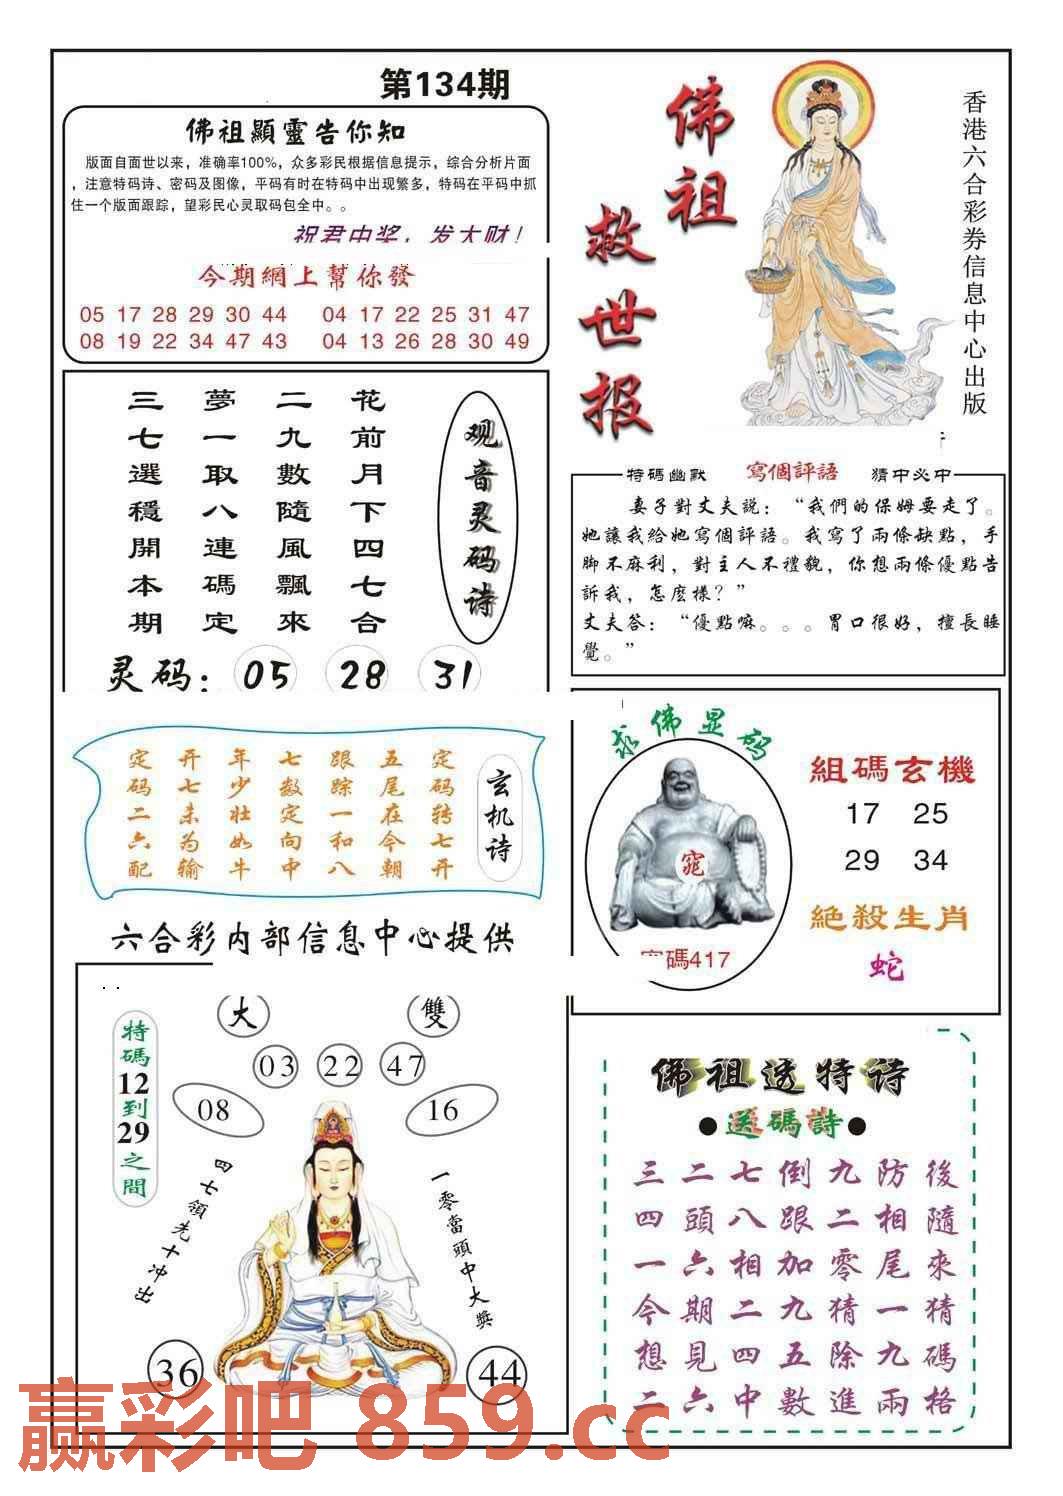 第134期
佛祖顯靈告你知
版面自面世以来，准确率100%，众多彩民根据信息提示，综合分析片面
，注意特码诗、密码及图像，平码有时在特码中出现繁多，特码在平码中抓
住一个版面跟踪，望彩民心灵取码包全中。。
祝君中奖，发大财！
今期網上幫你發
05 17 28 29 30 44 04 17 22 25 31 47
08 19 22 34 47 43 04 13 26 28 30 49
佛祖
救世报
香港六合彩券信息中心出版
观音灵码诗
花前月下四七合
二九數隨風飄來
夢一取八連碼定
三七選穩開本期
灵码：05 28 31
特碼幽默 寫個評語 猜中必中
妻子對丈夫説：“我們的保姆要走了。
她讓我給她寫個評語。我寫了兩條缺點，手
脚不麻利，對主人不禮貌，你想兩條優點告
訴我，怎麽樣？”
丈夫答：“優點嘛。。。胃口很好，擅長睡
覺。”
玄机诗
定码转七开
五尾在今朝
跟踪一和八
七数定向中
年少壮如牛
开七未为输
定码二六配
六合彩内部信息中心提供
求佛显码
窕
碼417
組碼玄機
17 25
29 34
絶殺生肖
蛇
大 雙
03 22 47
08 16
特碼12到29之間
四七領先十冲出
一零當頭中大獎
36 44
佛祖透特诗
●送碼詩●
三二七倒九防後
四頭八跟二相隨
一六相加零尾來
今期二九猜一猜
想見四五除九碼
二六中數進兩格
赢彩吧 859.cc